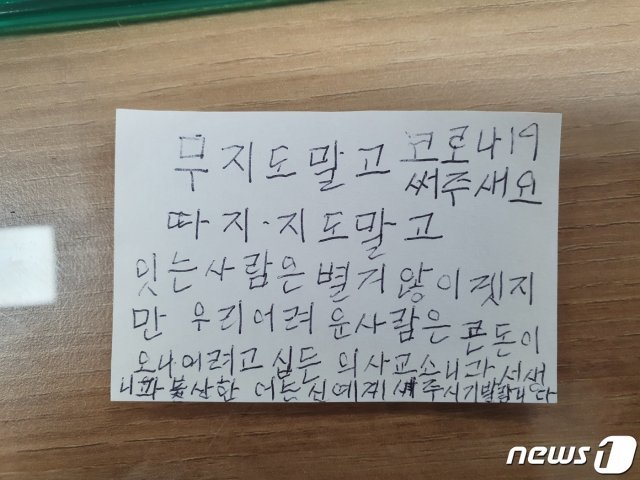 무지도말고 코로나19
써주새요
따지·지도말고
잇는사람은 별거 않이겟지
만 우리어려 운사람은 큰돈이
오니어려고 심든 의사교소니과 선생
니과 불산한 어른신예게 써주시기발람니다
news1